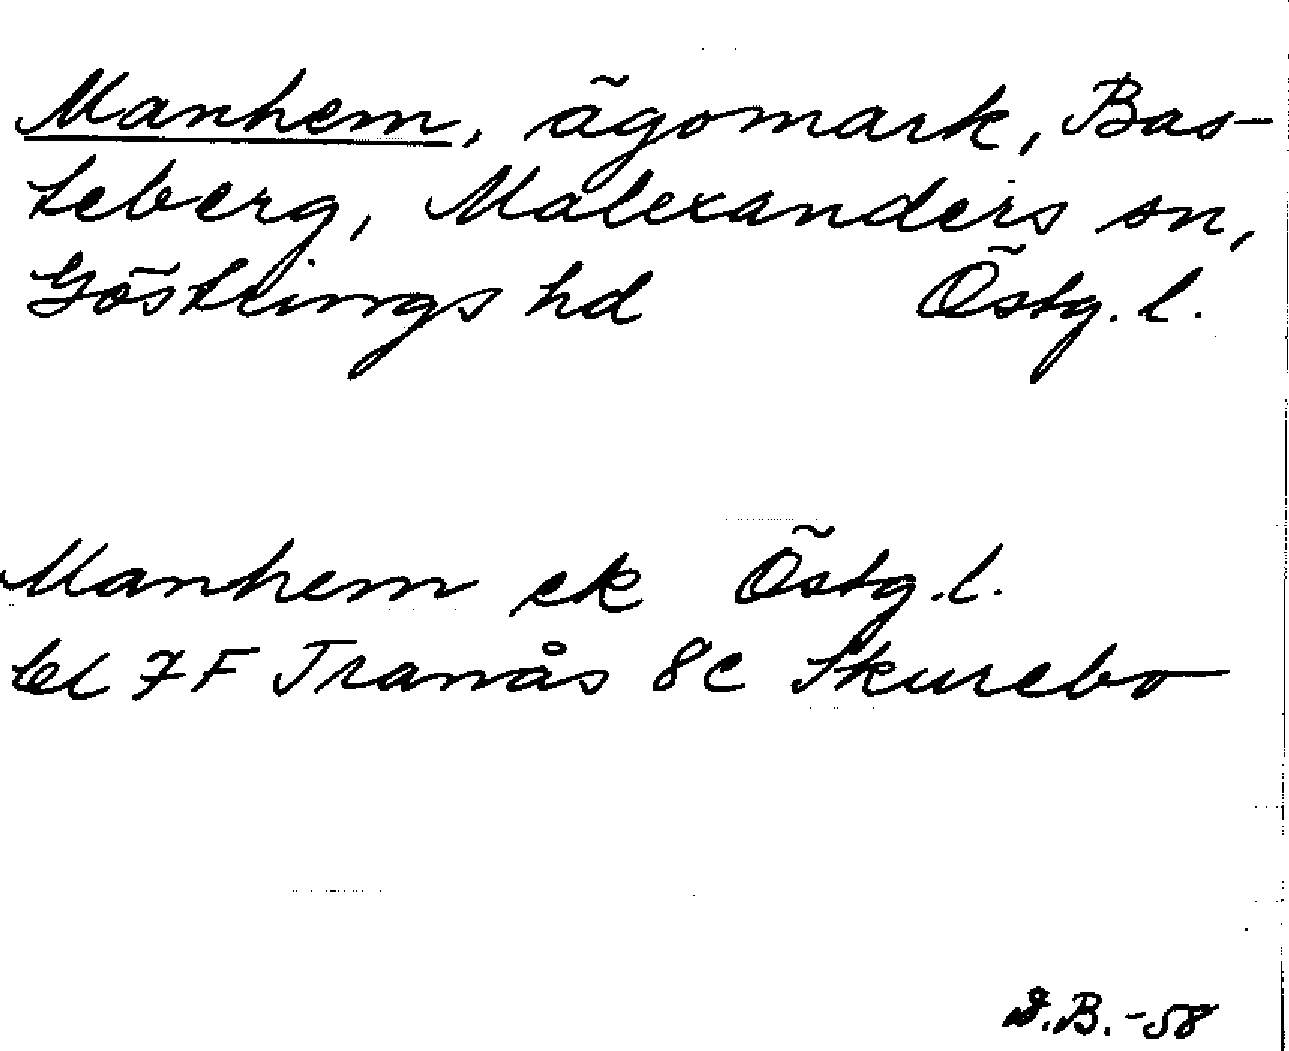 Manhem, ägomark, Bas-
teberg, Malexanders sn,
Göstrings hd Östg. l.
Manhem ek Östg. l.
bl 7F Tranås 8c Skurebo
D.B.-58